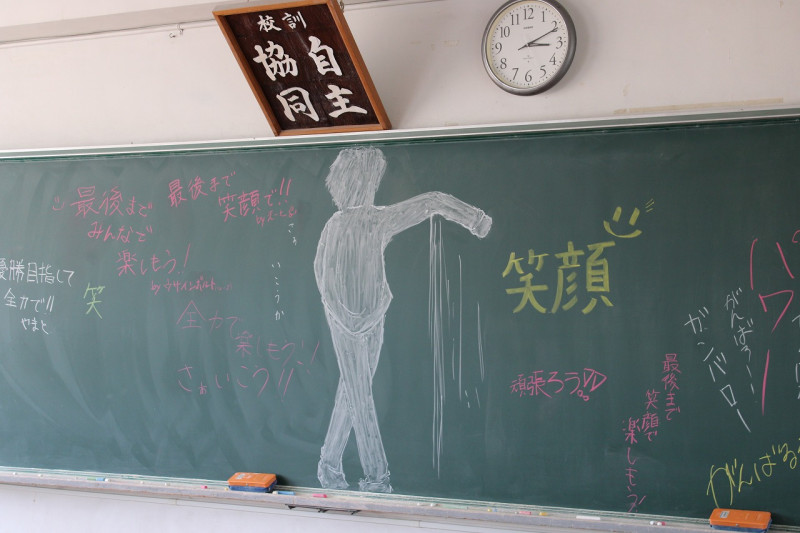 校訓
自主
協同
12
1
2
3
4
5
6
7
8
9
10
11
最後まで
みんなで
楽しもう!
最後まで
笑顔で!!
優勝目指して
全力で!!
やまと
笑
全力で
楽しもう!!
さぁいこう!!
さぁ
いこうか
笑顔
頑張ろう
最後まで
笑顔で
楽しもう!
パワー
がんばろー!
ガンバロー
がんばる